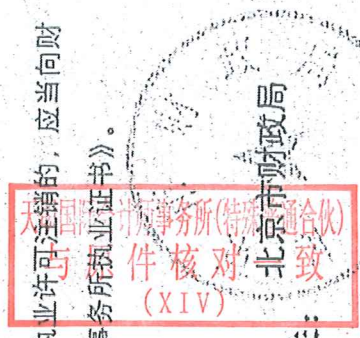 执业许可注销的，应当向财
事务所执业证书》。
北京市财政局
天职国际会计师事务所(特殊普通合伙)
与原件核对一致
(XIV)